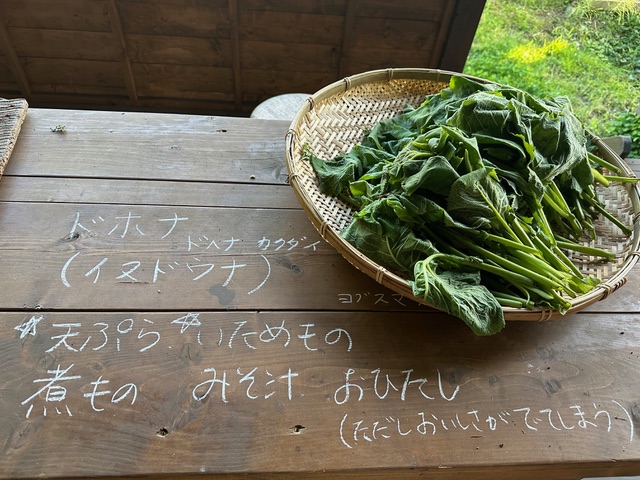 ドホナ
ドヘナ カクダイ
(イヌドウナ)
ヨブスマ
☆天ぷら ☆いためもの
煮もの みそ汁 おひたし
(ただしおいしさがでてしまう)